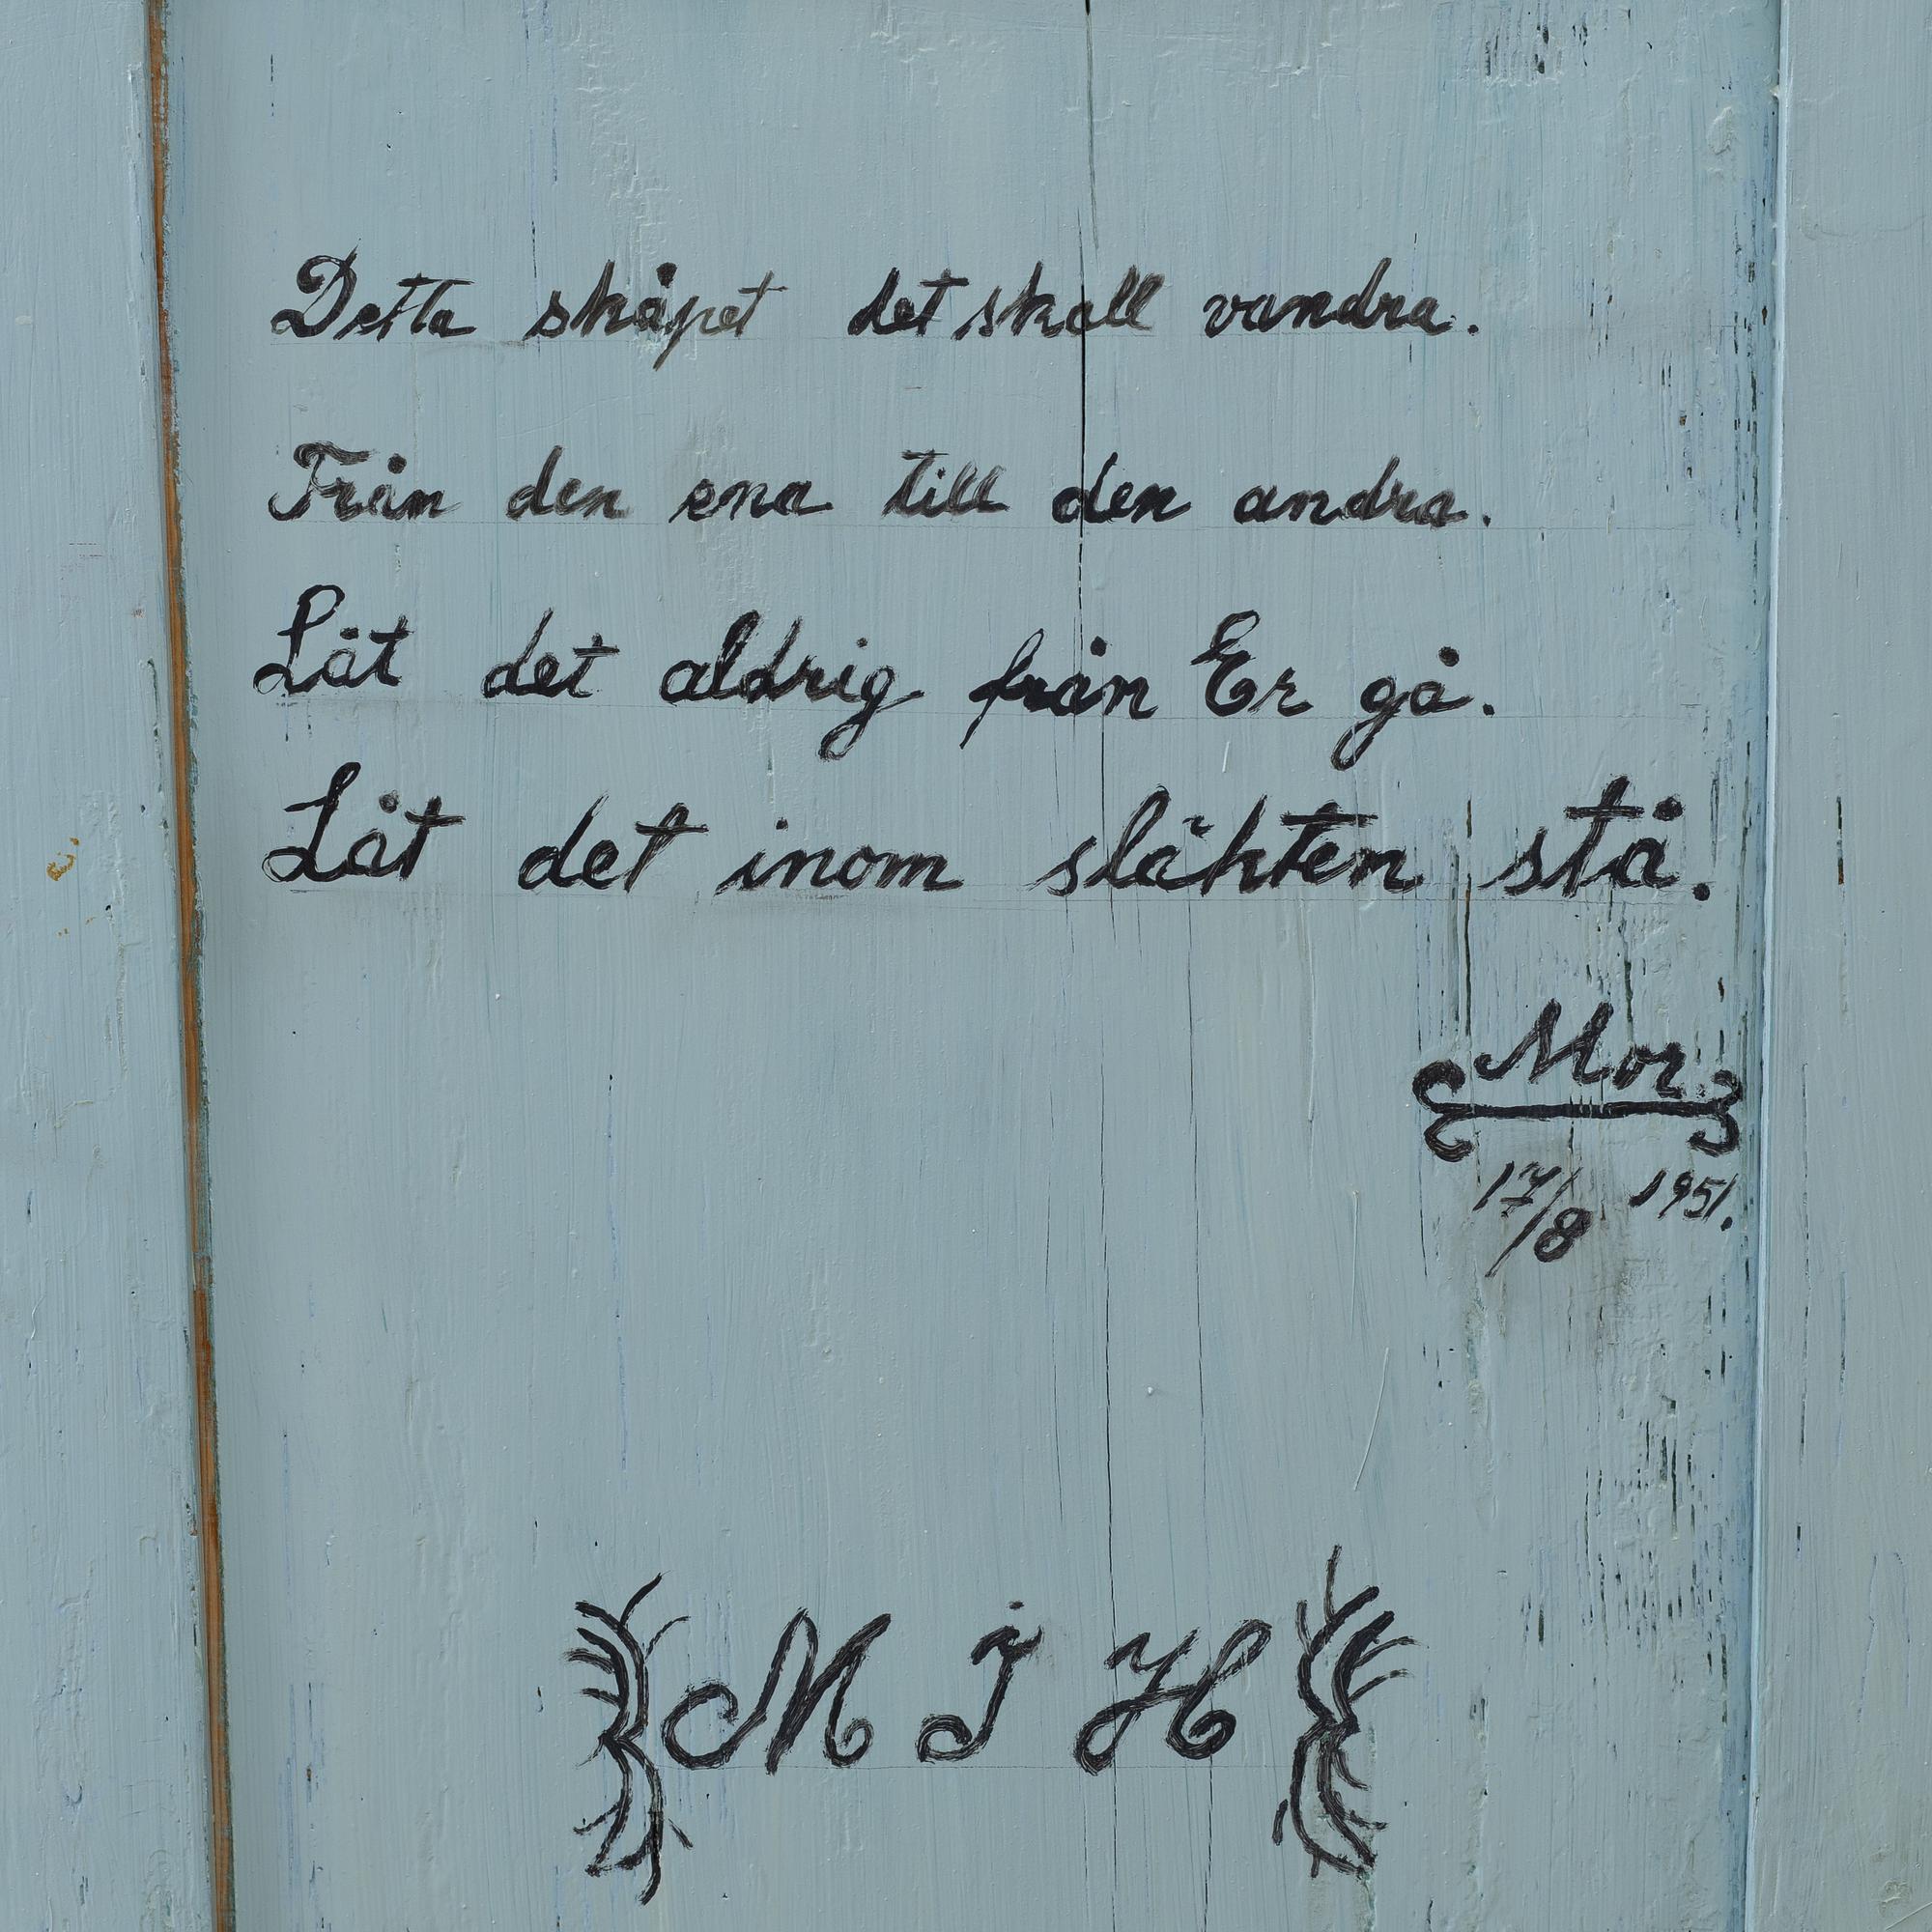 Detta skåpet det skall vandra.
Från den ena till den andra.
Låt det aldrig från Er gå.
Låt det inom släkten stå.
Mor
17/8 1951.
M J H